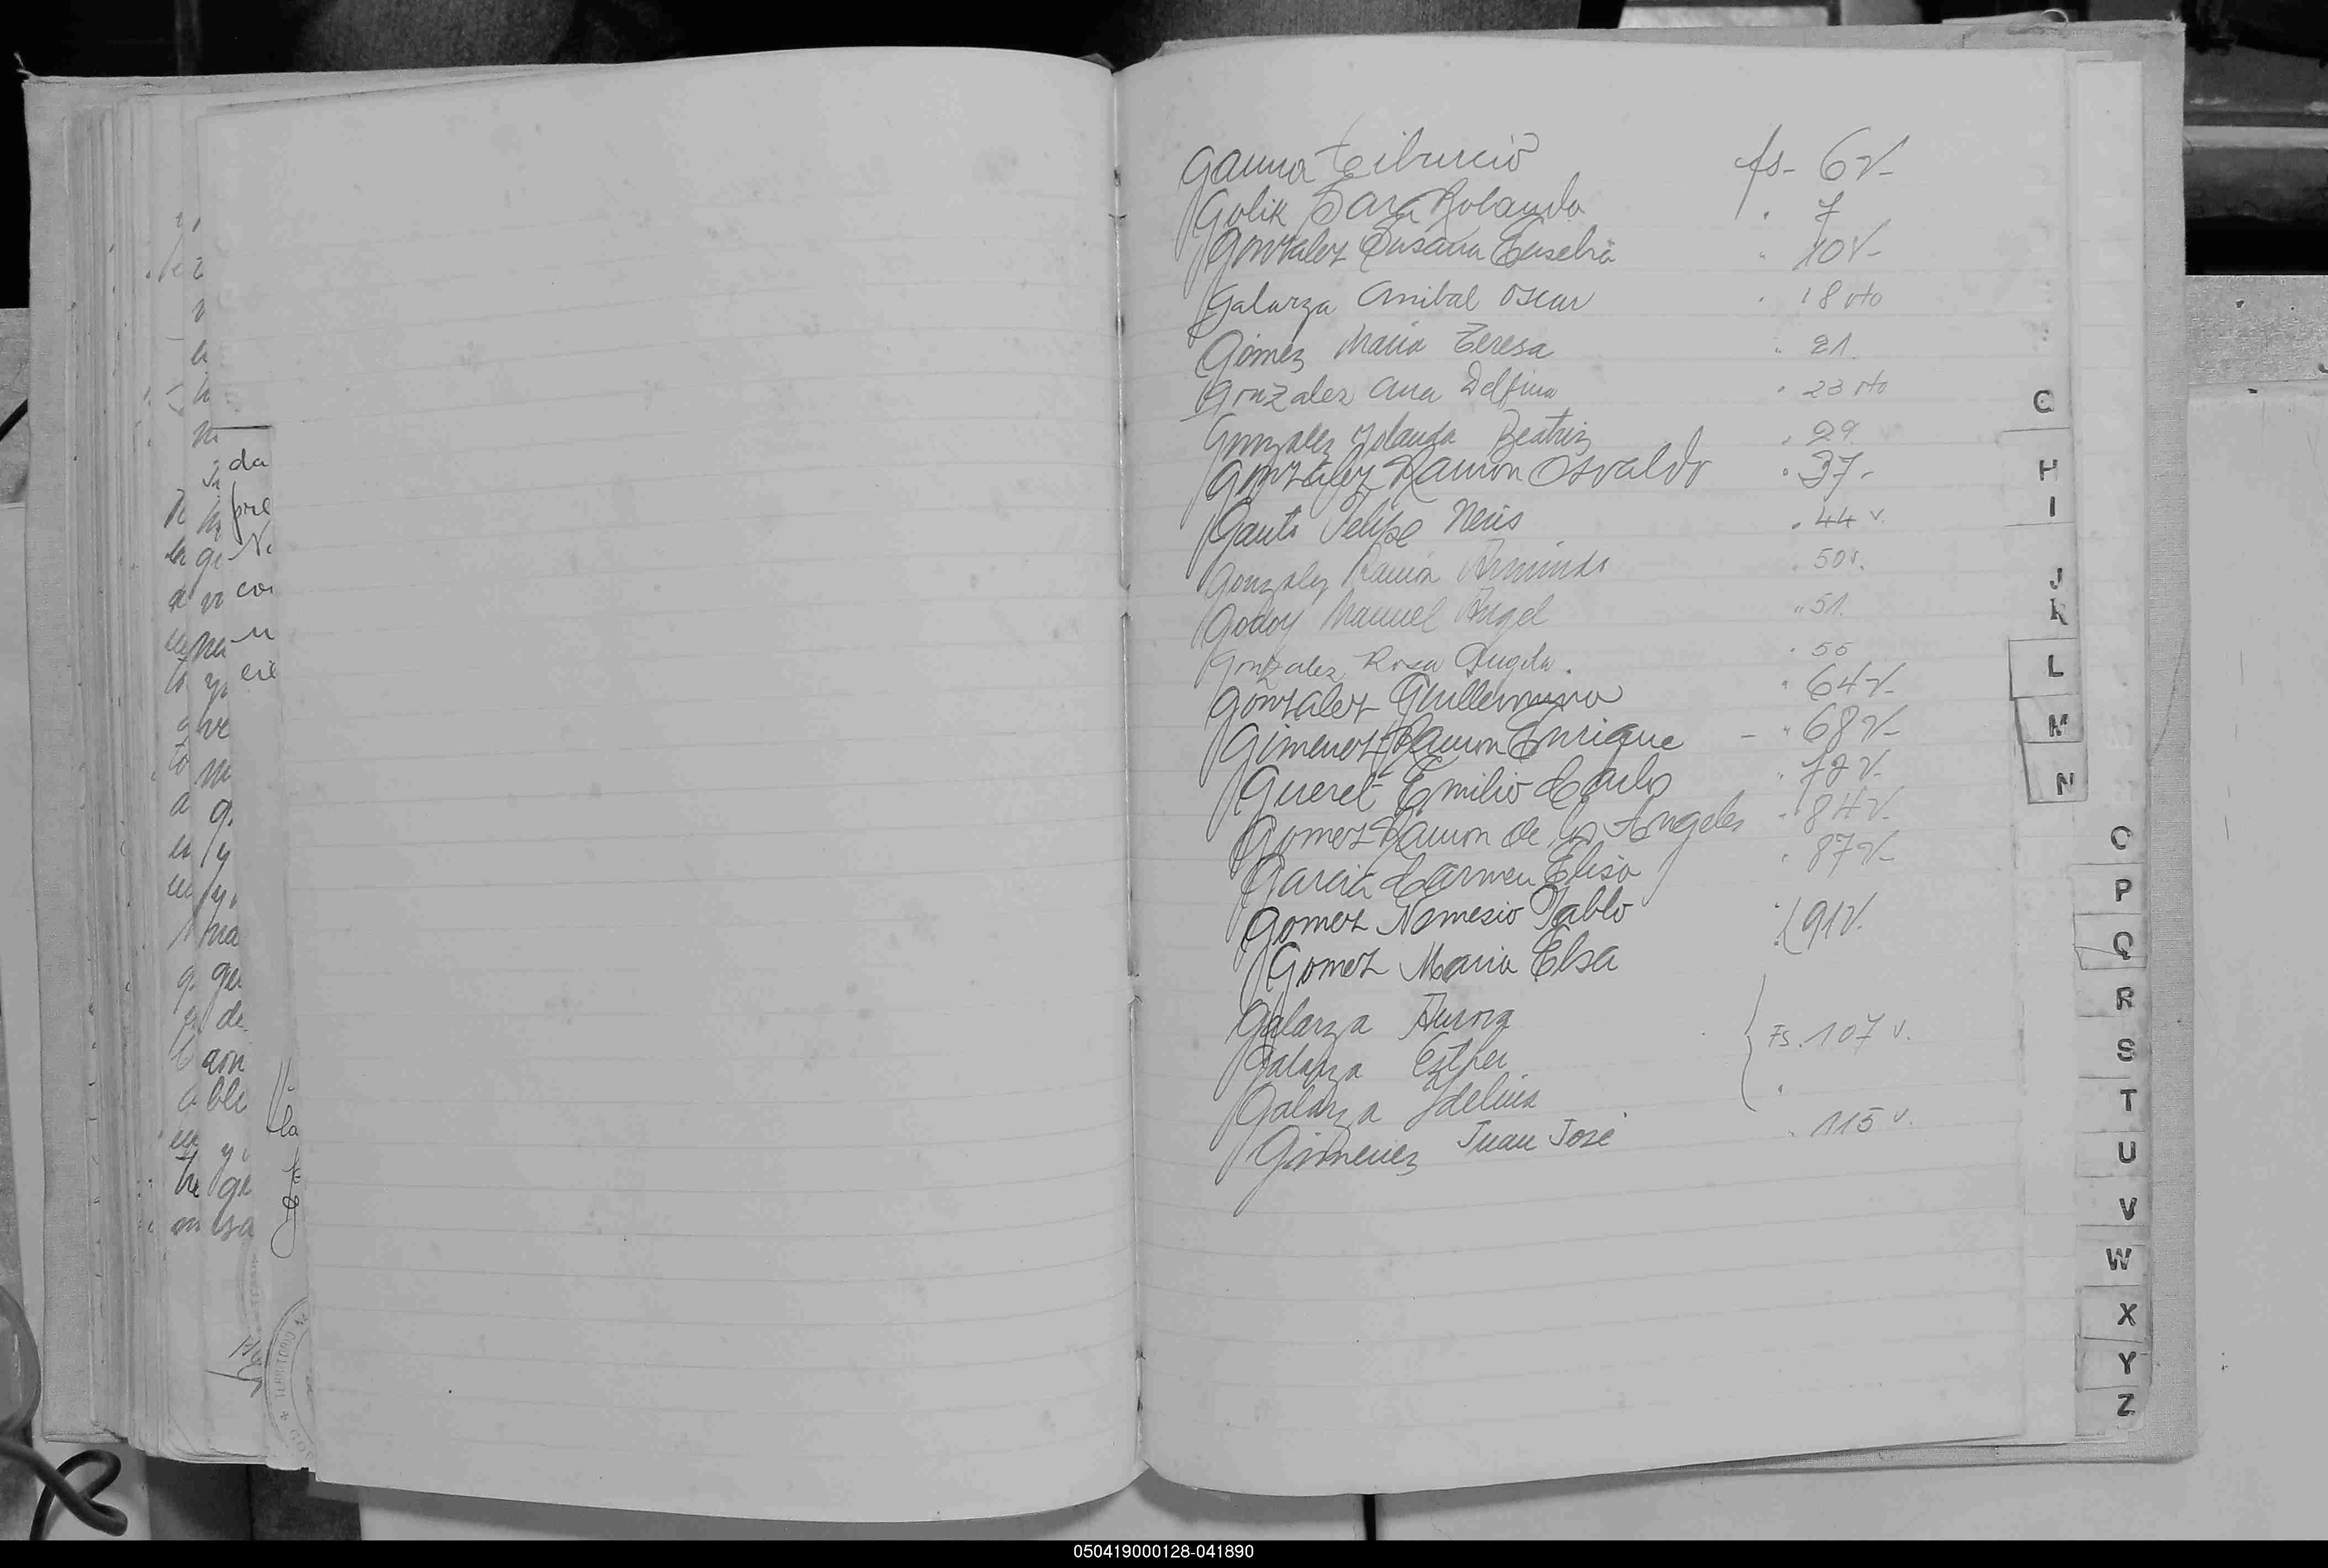 Gauna Tiburcio fs- 6v-
Golik Sara Rolanda " 7
Gonzalez Susana Eusebia " 10v-
Galarza Anibal Oscar " 18 vto
Gómez María Teresa " 21.
Gonzalez Ana Delfina " 23 vto
Gonzalez Yolanda Beatriz " 29.
Gonzalez Ramon Osvaldo " 37-
Gauto Felipe Neris " 44 v.
Gonzalez Ramón Arminda " 50v.
Godoy Manuel Angel " 51.
Gonzalez Rosa Angela. " 55
Gonzalez Guillermina " 64v-
Gimenez Ramon Enrique - " 68v-
Gueret Emilio Carlos " 72v-
Gomez Ramon de los Angeles " 84v-
Garcia Carmen Elisa " 87v-
Gomez Nemesio Pablo
Gomez Maria Elsa " 91v.
Galarza Aurora
Galarza Esther Fs. 107 v.
Galarza Idelina
Gimenez Juan José " 115 v.
G
H
I
J
K
L
M
N
O
P
Q
R
S
T
U
V
W
X
Y
Z
da
pre
co
TERRITORIO
050419000128-041890